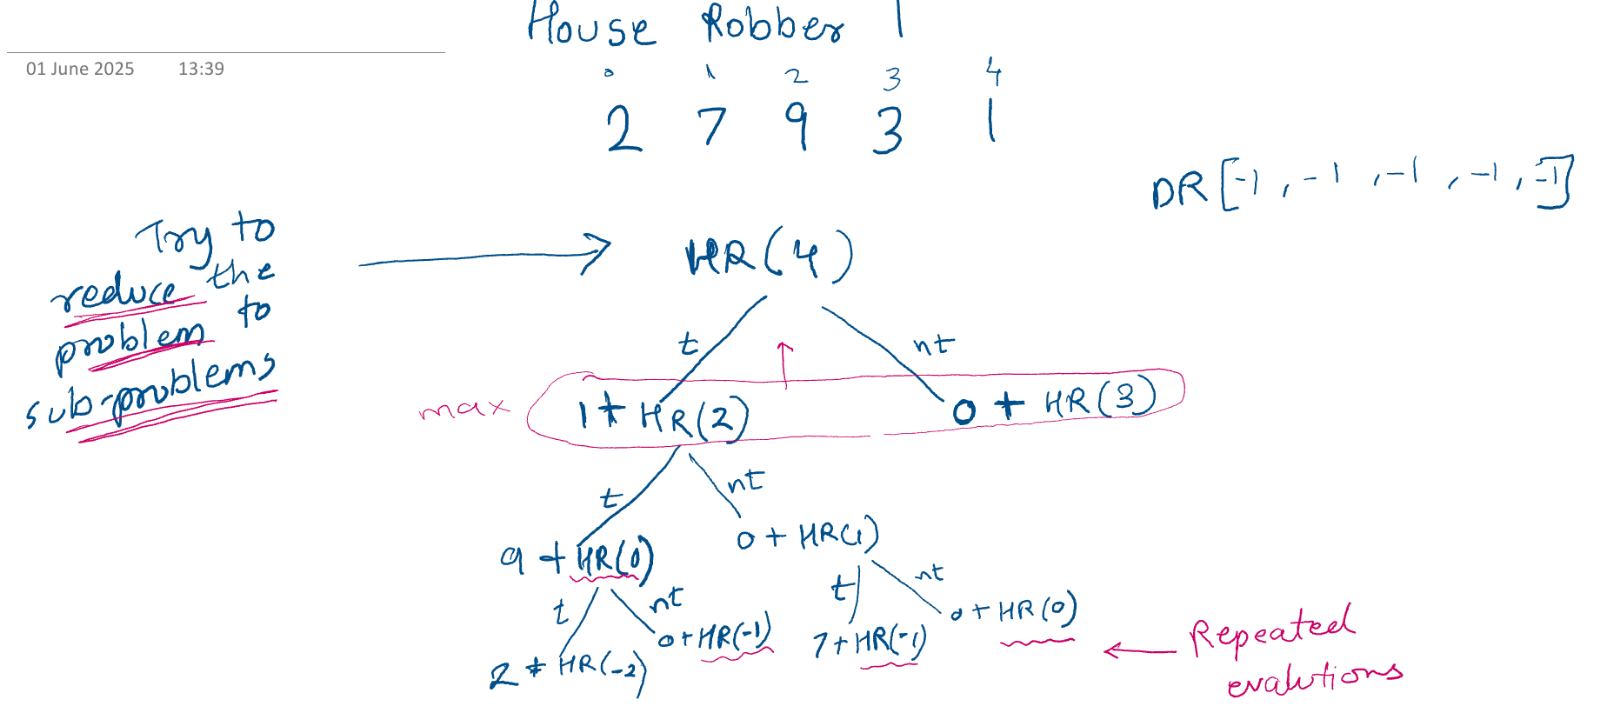 House Robber 1
01 June 2025 13:39
0 1 2 3 4
2 7 9 3 1
DR[-1, -1, -1, -1, -1]
Try to
reduce the
problem to
sub-problems
HR(4)
t nt
max 1 + HR(2) 0 + HR(3)
t nt
9 + HR(0) 0 + HR(1)
t nt t nt
2 + HR(-2) 0 + HR(-1) 7 + HR(-1) 0 + HR(0)
Repeated
evalutions